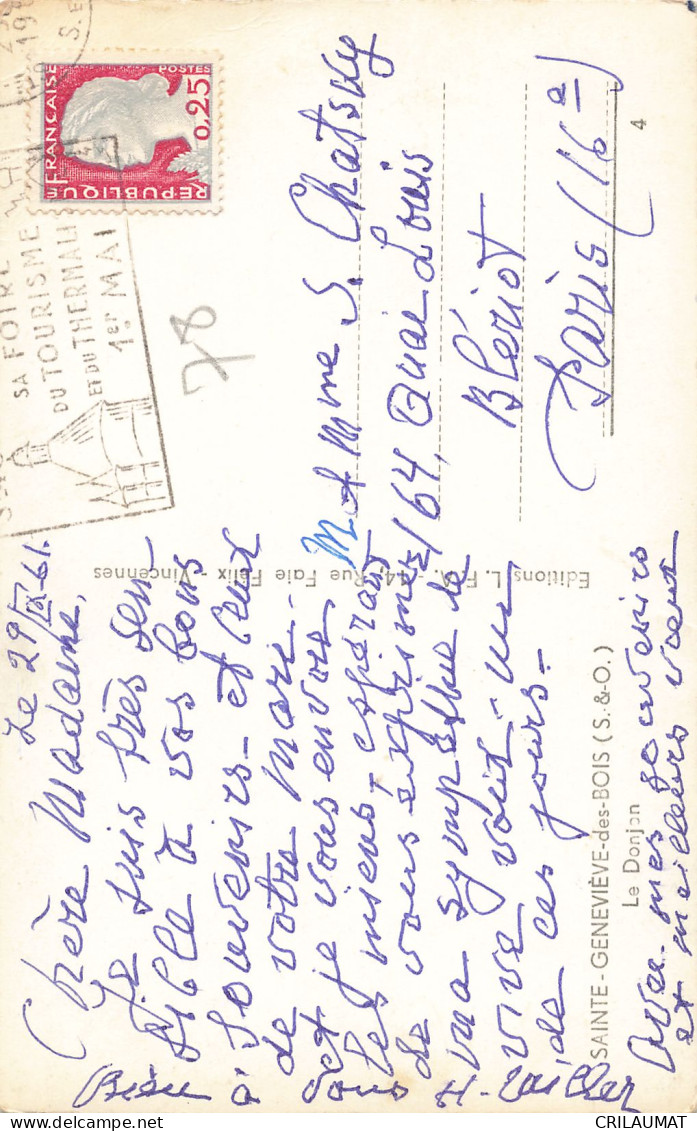 Le 29/IX-61.
Chère Madame,
Je suis très sen-
sible à vos bons
souvenirs - et ceux
de votre Mari -
et je vous envoie
les miens, espérant
de vous exprimer
ma sympathie de
vive voix - un
de ces jours -
Avec mes souvenirs
et meilleurs vœux
Bien
vous
H.
M et Mme S. Chatsky
164, Quai Louis
Blériot
Paris (16e)
78
RÉPUBLIQUE FRANÇAISE
POSTES
0,25
SA FOIRE
DU TOURISME
ET DU THERMALI
1er MAI
Editions L. F. V. - 44, Rue Faie Félix - Vincennes
SAINTE-GENEVIÈVE-des-BOIS (S.-&-O.)
Le Donjon
4
delcampe.net
CRILAUMAT